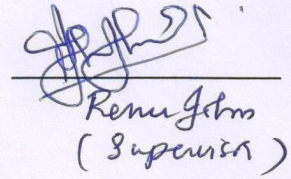 Renu John
(Supervisor)